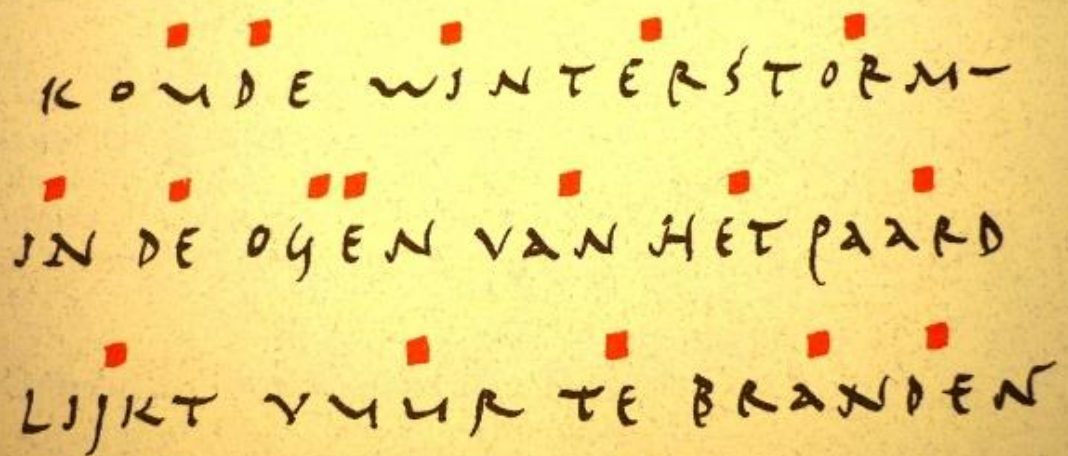 KOUDE WINTERSTORM-
IN DE OGEN VAN HET PAARD
LIJKT VUUR TE BRANDEN